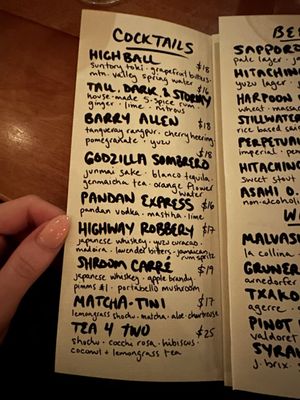 COCKTAILS
HIGHBALL $18
suntory toki · grapefruit bitters ·
mtn. valley spring water
TALL, DARK, & STORMY $16
house-made 5-spice rum
ginger · lime · nitrous
BARRY ALLEN $18
tanqueray rangpur · cherry heering
pomegranate · yuzu
GODZILLA SOMBRERO $18
junmai sake · blanco tequila ·
genmaicha tea · orange flower
water
PANDAN EXPRESS $16
pandan vodka · mastiha · lime
HIGHWAY ROBBERY $17
japanese whiskey · yuzu curacao ·
madeira · lavender bitters · jamaican
rum spritz
SHROOM CARRÉ $19
japanese whiskey · apple brandy ·
pimms #1 · portabello mushroom
MATCHA-TINI $17
lemongrass shochu · matcha · aloe · chartreuse
TEA 4 TWO $25
shochu · cocchi rosa · hibiscus ·
coconut + lemongrass tea
BE
SAPPORO
pale lager
HITACHIN
yuzu lager
HARPOON
wheat · massa
STILLWATER
rice based sa
PERPETUAL
imperial · pen
HITACHIN
sweet stout
ASAHI 0.
non-alcoholi
W
MALVAS
la collina
GRUNER
arndorfer
TXAKO
agerre
PINOT
valdoret
SYRAH
j. brix